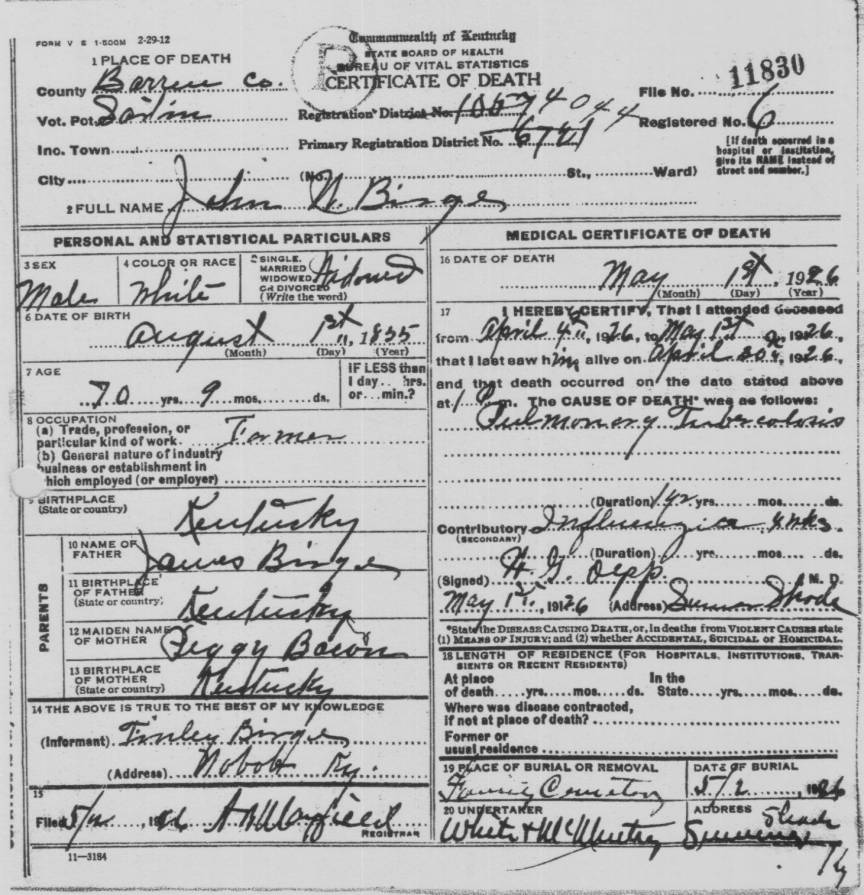 FORM V S 1-500M 2-29-12
Commonwealth of Kentucky
STATE BOARD OF HEALTH
BUREAU OF VITAL STATISTICS
CERTIFICATE OF DEATH
1 PLACE OF DEATH
County Barren Co.
Vot. Pct.
Inc. Town
City
Registration District No. 105 74044
Primary Registration District No. 6741
File No. 11830
Registered No. 6
[If death occurred in a
hospital or institution,
give its NAME instead of
street and number.]
(No. St., Ward)
2 FULL NAME John N. Birge
PERSONAL AND STATISTICAL PARTICULARS
3 SEX
Male
4 COLOR OR RACE
White
5 SINGLE,
MARRIED
WIDOWED
OR DIVORCED
(Write the word)
Widowed
6 DATE OF BIRTH
August 1st, 1855
(Month) (Day) (Year)
7 AGE
70 yrs. 9 mos. ds.
IF LESS than
1 day... hrs.
or... min.?
8 OCCUPATION
(a) Trade, profession, or
particular kind of work Farmer
(b) General nature of industry
business or establishment in
which employed (or employer)
9 BIRTHPLACE
(State or country)
Kentucky
PARENTS
10 NAME OF
FATHER
James Birge
11 BIRTHPLACE
OF FATHER
(State or country)
Kentucky
12 MAIDEN NAME
OF MOTHER
Peggy Bacon
13 BIRTHPLACE
OF MOTHER
(State or country)
Kentucky
14 THE ABOVE IS TRUE TO THE BEST OF MY KNOWLEDGE
(Informant) Finley Birge
(Address) Nobob Ky.
15
Filed 5/2 1926 Mayfield
REGISTRAR
11-3184
MEDICAL CERTIFICATE OF DEATH
16 DATE OF DEATH
May 1st, 1926
(Month) (Day) (Year)
17 I HEREBY CERTIFY, That I attended deceased
from April 4th, 1926, to May 1st, 1926,
that I last saw him alive on April 30th, 1926,
and that death occurred on the date stated above
at 1 P m. The CAUSE OF DEATH* was as follows:
Pulmonary Tuberculosis
(Duration) yrs. mos. ds.
Contributory
(SECONDARY)
4 wks.
(Duration) yrs. mos. ds.
(Signed) H. G. M. D.
May 1st, 1926 (Address) Summer Shade
*State the DISEASE CAUSING DEATH, or, in deaths from VIOLENT CAUSES state
(1) MEANS OF INJURY; and (2) whether ACCIDENTAL, SUICIDAL or HOMICIDAL.
18 LENGTH OF RESIDENCE (FOR HOSPITALS, INSTITUTIONS, TRAN-
SIENTS OR RECENT RESIDENTS)
At place In the
of death yrs. mos. ds. State yrs. mos. ds.
Where was disease contracted,
if not at place of death?
Former or
usual residence
19 PLACE OF BURIAL OR REMOVAL
Family Cemetery
DATE OF BURIAL
5/2 1926
20 UNDERTAKER
White & McMurtrey
ADDRESS
Summer Shade
Ky